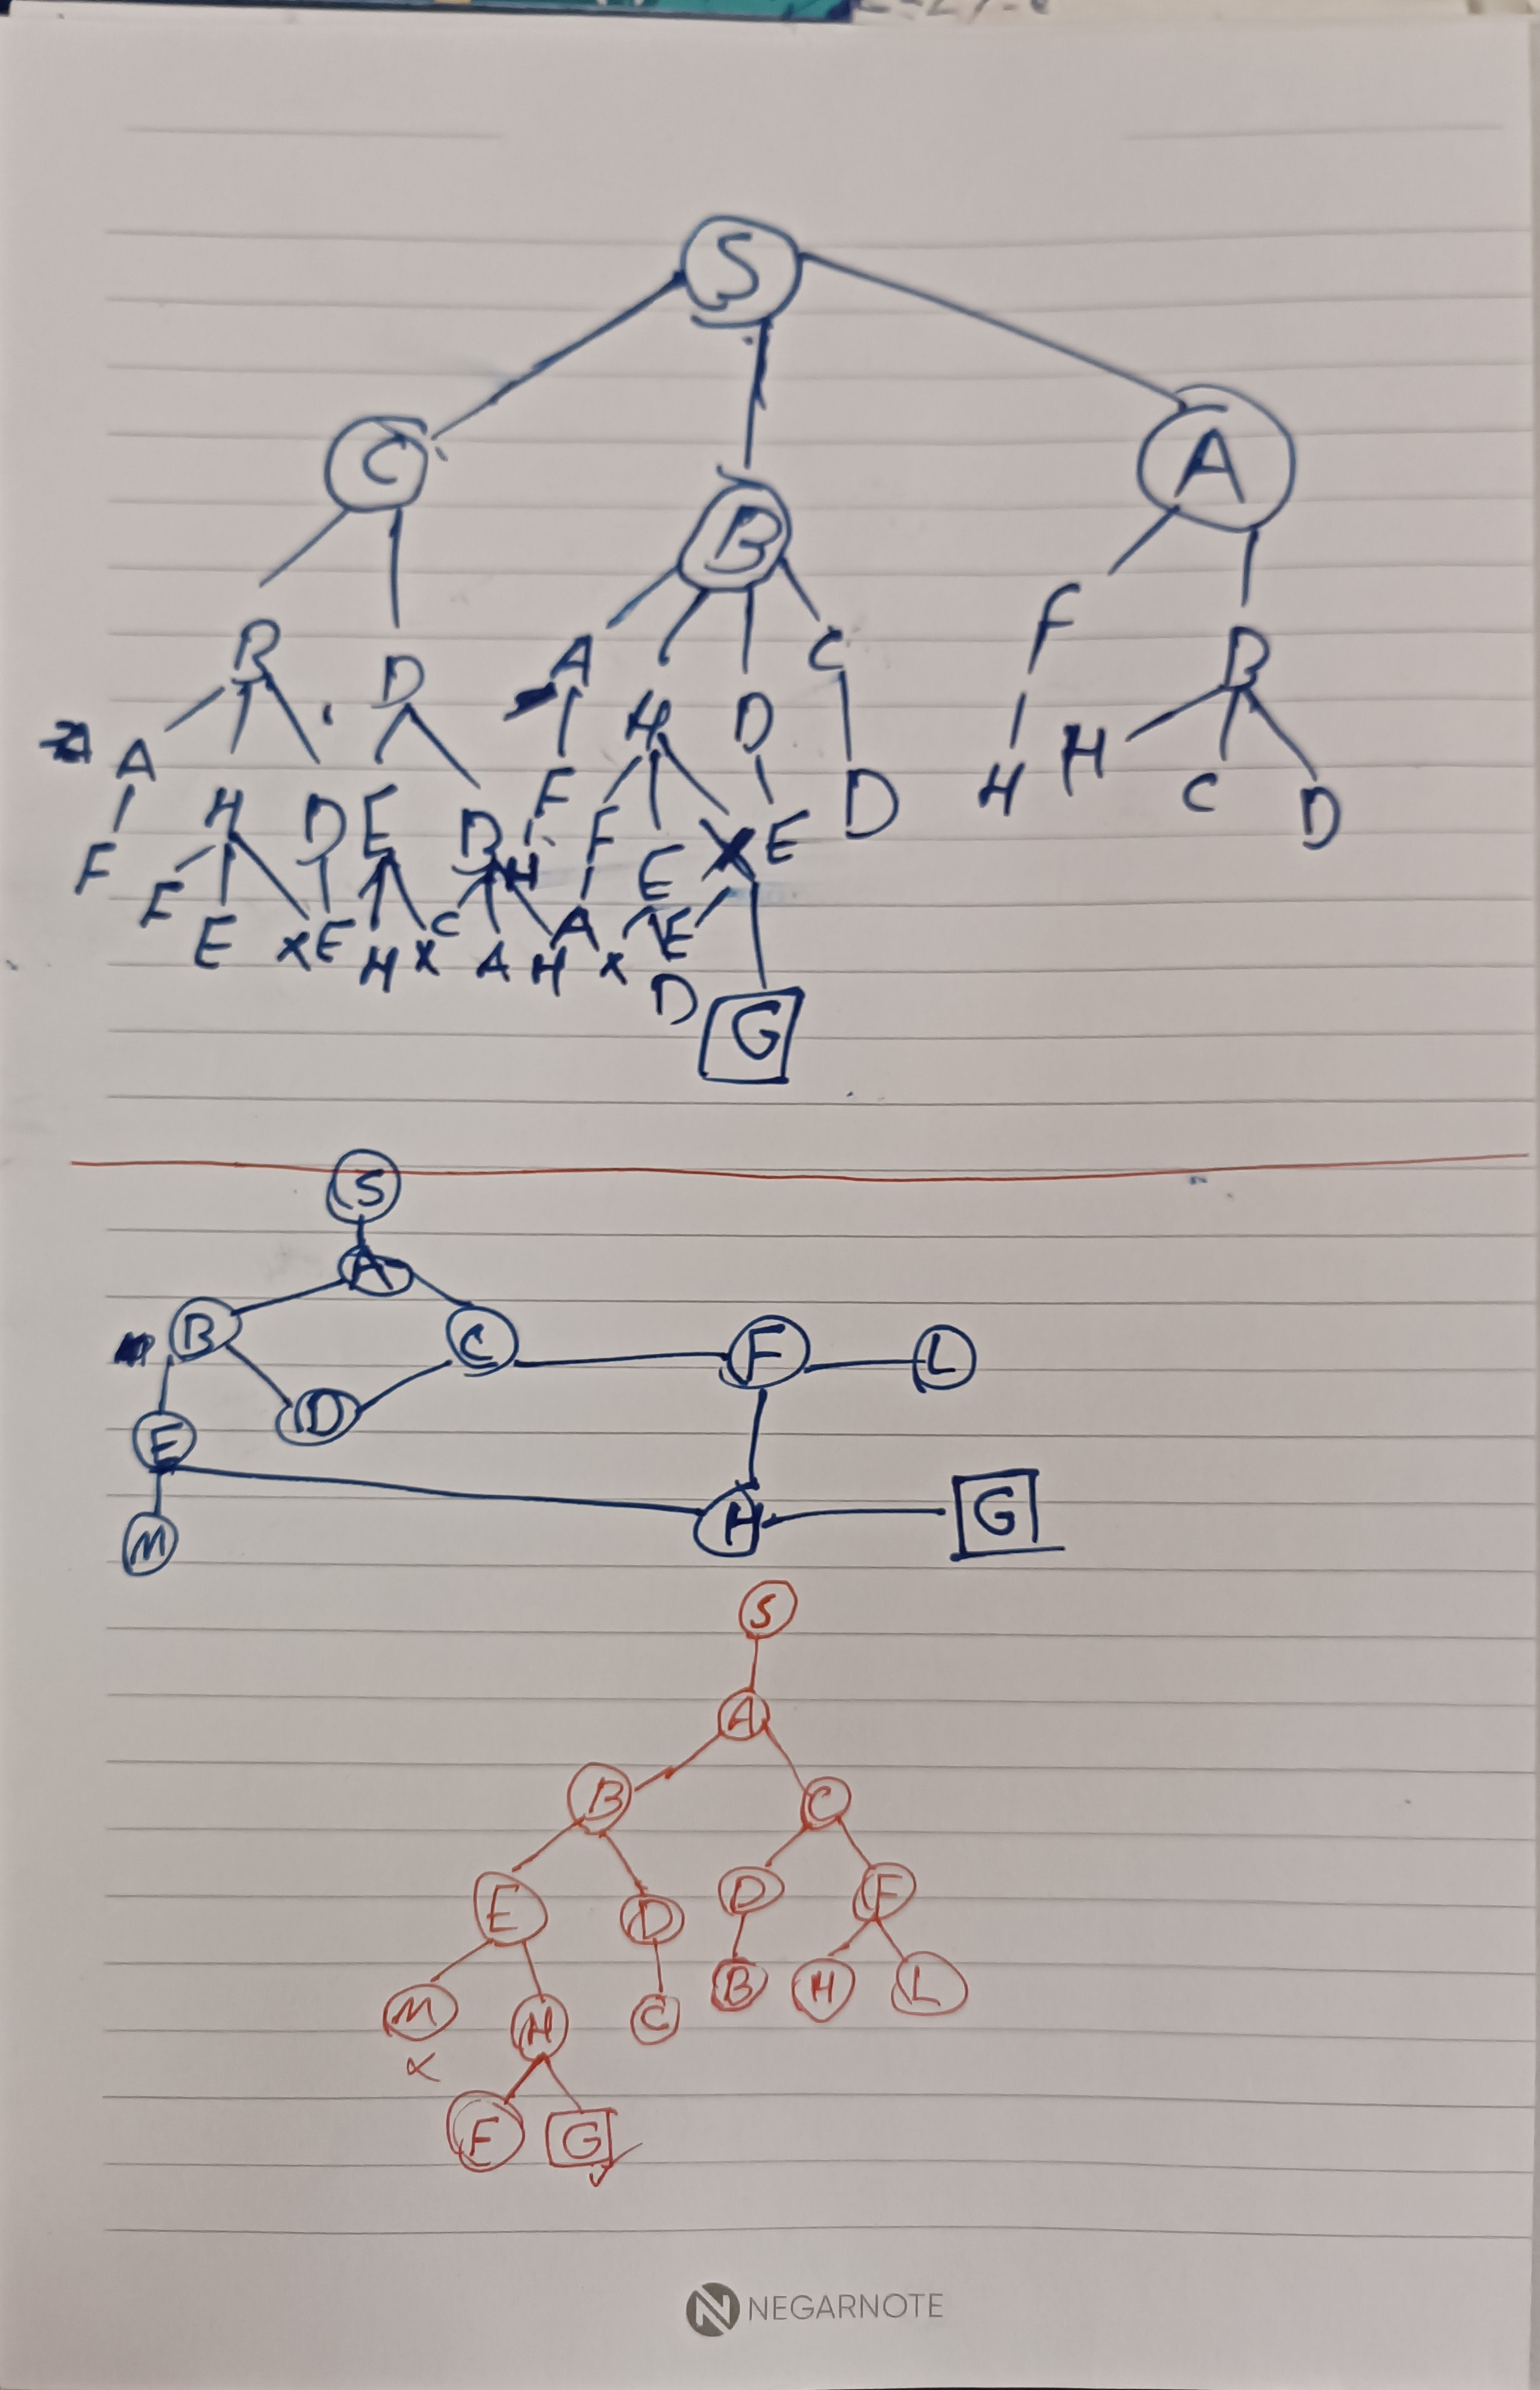 S
C B A
B D A H D C F B
A H D E B F F E X E D H H C D
F F E X E H X C A H H A X E D
G
S
A
B C F L
D
E
M H G
S
A
B C
E D D F
M H C B H L
F G
NEGARNOTE